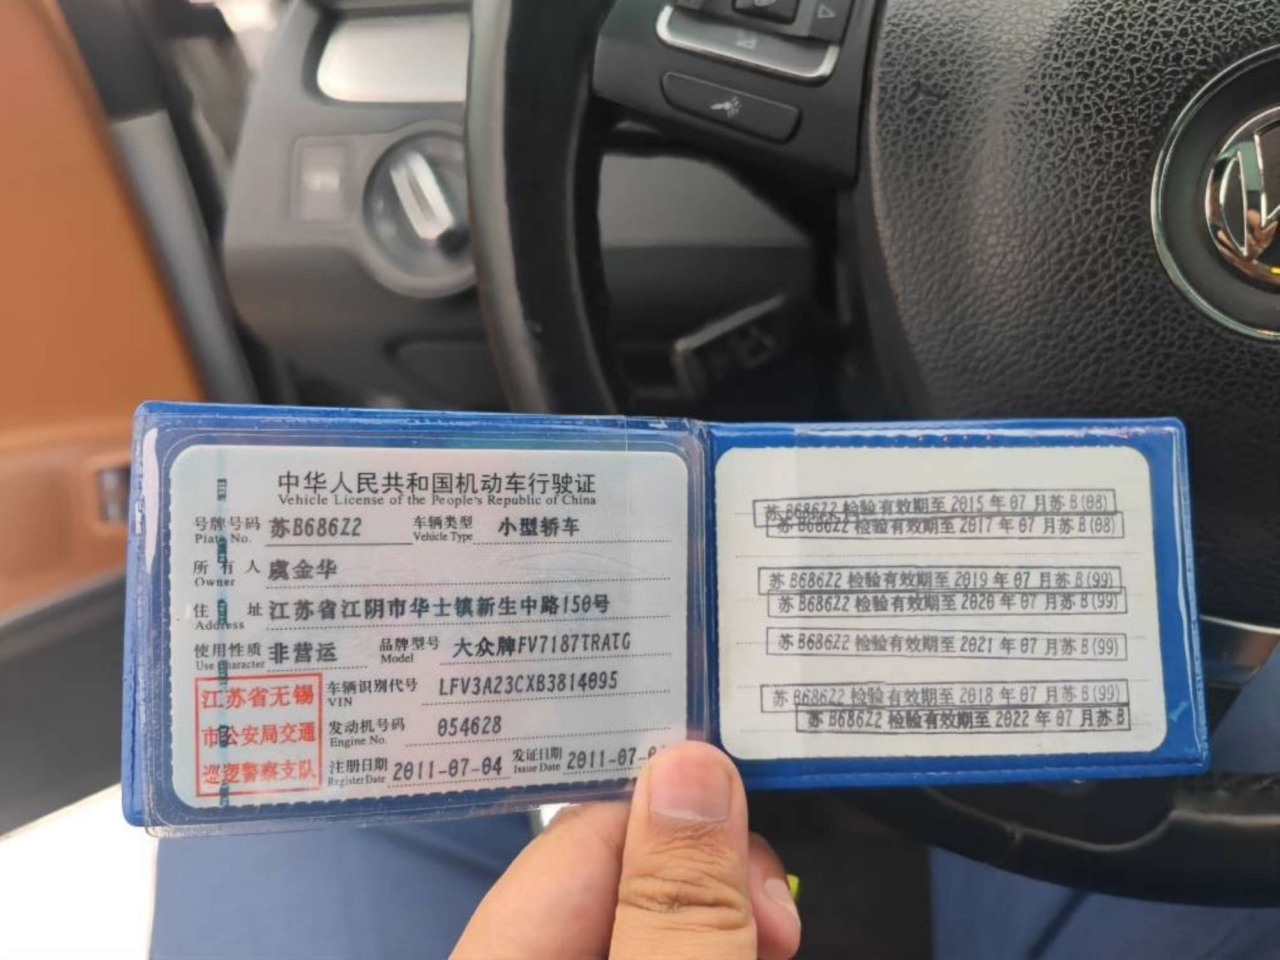 中华人民共和国机动车行驶证
Vehicle License of the People's Republic of China
号牌号码 苏B686Z2 车辆类型 小型轿车
Plate No. Vehicle Type
所有人 虞金华
Owner
住址 江苏省江阴市华士镇新生中路150号
Address
使用性质 非营运 品牌型号 大众牌FV7187TRATG
Use Character Model
江苏省无锡
市公安局交通
巡逻警察支队
车辆识别代号 LFV3A23CXB3814095
VIN
发动机号码 054628
Engine No.
注册日期 2011-07-04 发证日期 2011-07-0
Register Date Issue Date
苏B686Z2 检验有效期至 2015 年 07 月苏 B(08)
苏B686Z2 检验有效期至 2017 年 07 月苏 B(08)
苏B686Z2 检验有效期至 2019 年 07 月苏 B(99)
苏B686Z2 检验有效期至 2020 年 07 月苏 B(99)
苏B686Z2 检验有效期至 2021 年 07 月苏 B(99)
苏B686Z2 检验有效期至 2018 年 07 月苏 B(99)
苏B686Z2 检验有效期至 2022 年 07 月苏 B